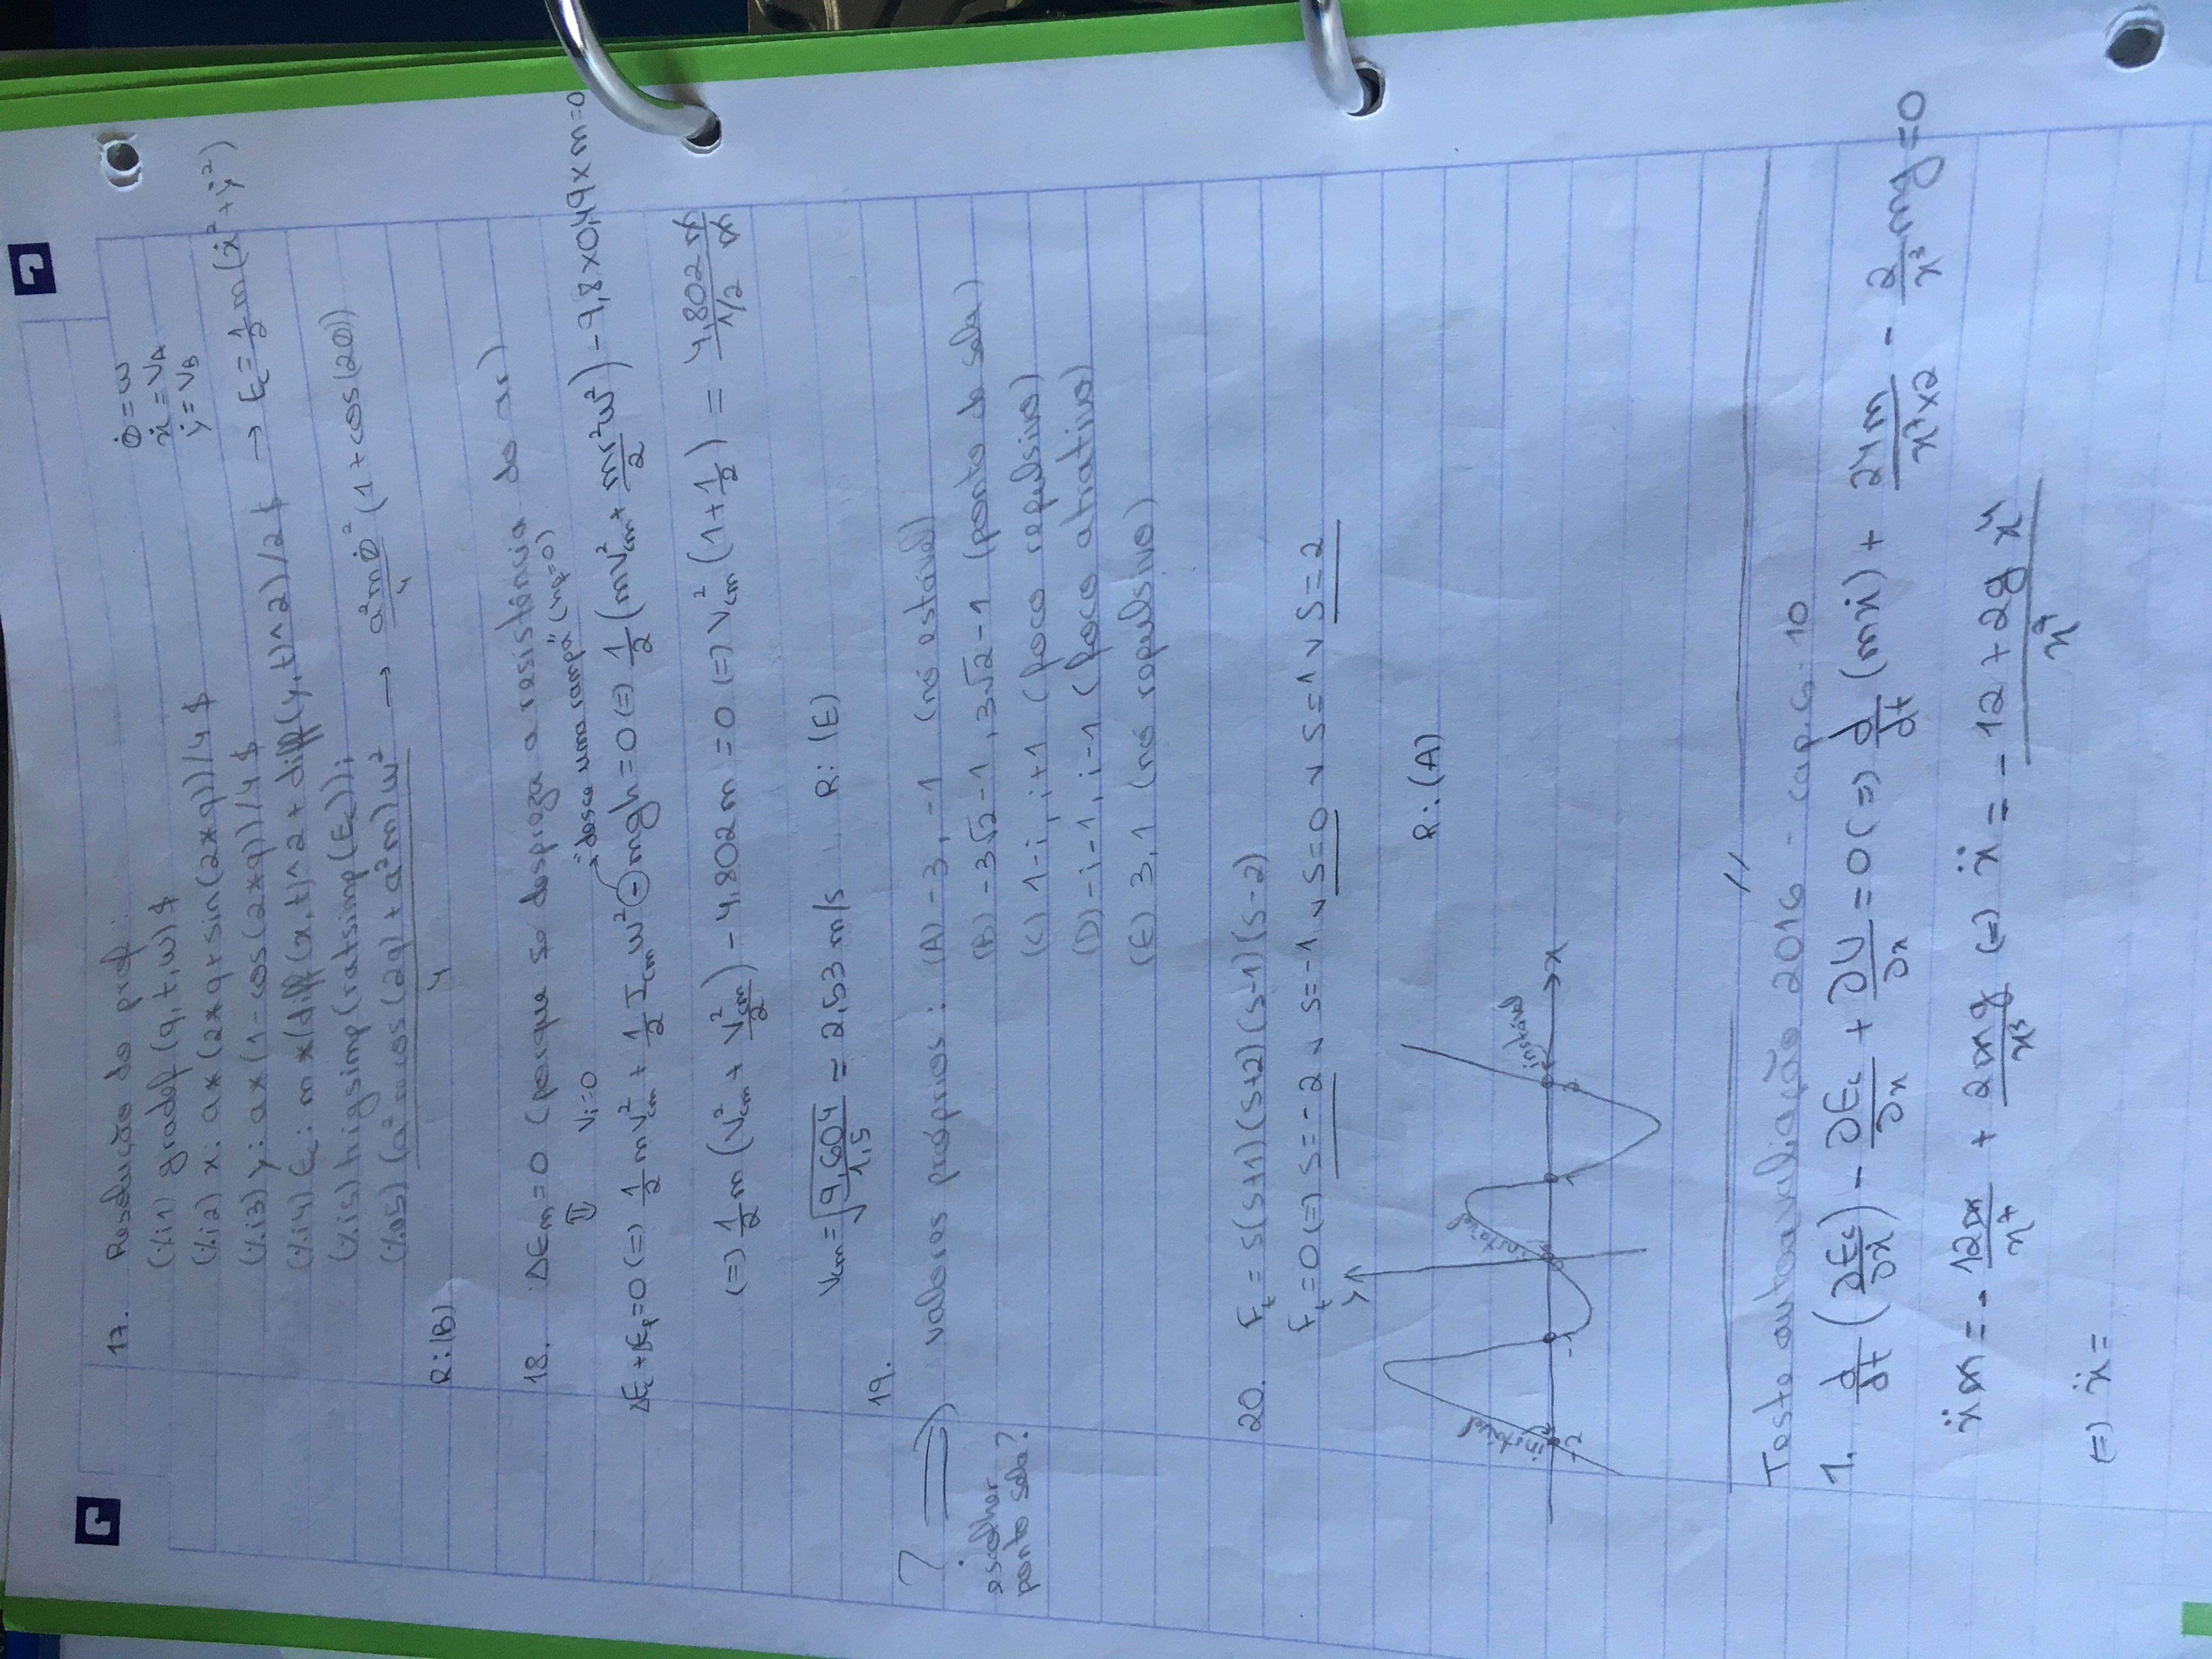 17. Resolução do prof:
(%i1) gradef(q,t,w)$
(%i2) x: a*(2*q+sin(2*q))/4$
(%i3) y: a*(1-cos(2*q))/4$
(%i4) Ec: m*(diff(x,t)^2+diff(y,t)^2)/2$ → Ec = 1/2 m(ẋ²+ẏ²)
(%i5) trigsimp(ratsimp(Ec));
(%o5) (a² m cos(2q) + a²m)w² / 4 → a²m θ̇²/4 (1+cos(2θ))
θ̇ = w
ẋ = VA
ẏ = VB
R: (B)
18. ΔEm = 0 (porque se despreza a resistência do ar)
⇕ Vi=0 → "desce uma rampa" (hf=0)
ΔEc + ΔEp = 0 (=) 1/2 mv²cm + 1/2 Icm w² - mgh = 0 (=) 1/2 (mv²cm + mr²w²/2) - 9,8×0,49×m = 0
(=) 1/2 m (V²cm + V²cm/2) - 4,802m = 0 (=) V²cm (1+1/2) = 4,802 m / 1/2 m
Vcm = √(9,604/1,5) = 2,53 m/s R: (E)
19.
? ⇒
escolher
ponto sela?
valores próprios: (A) -3, -1 (nó estável)
(B) -3√2-1, 3√2-1 (ponto de sela)
(C) 1-i, i+1 (foco repulsivo)
(D) -i-1, i-1 (foco atrativo)
(E) 3,1 (nó repulsivo)
20. Ft = s(s+1)(s+2)(s-1)(s-2)
Ft = 0 (=) s=-2 v s=-1 v s=0 v s=1 v s=2
y
R: (A)
instável instável instável
-2 -1 1 2 x
//
Teste autoavaliação 2016 - cap. 6-10
1. d/dt (∂Ec/∂ẋ) - ∂Ec/∂x + ∂U/∂x = 0 (=) d/dt (mẋ) + 24m/x⁷×2 - 2/x³ mg = 0
ẍm = - 12m/x⁷ + 2mg/x³ (=) ẍ = - 12+2g x⁴ / x⁷
(=) ẍ =